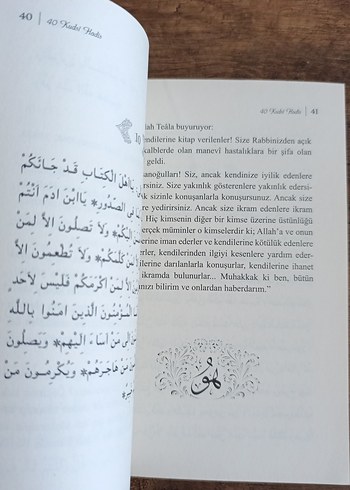 40 | 40 Kudsi Hadis
يَا اَهْلَ الْكِتَابِ قَدْ جَائَكُمْ
فِى الصُّدُورِ* يَا ابْنَ ادَمَ اَنْتُمْ
اِلَيْكُمْ* وَلاَ تَصِلُونَ الاَّ لِمَنْ
كَلَّمَكُمْ* وَلاَ تُطْعِمُونَ الاَّ
الاَّ لِمَنْ اَكْرَمَكُمْ فَلَيْسَ لاَحَدٍ
الْمُؤْمِنُونَ الَّذِينَ امَنُوا بِاللَّهِ
اِلَى مَنْ اَسَاءَ اِلَيْهِمْ* وَيَصِلُونَ
مَنْ هَاجَرَهُمْ* وَيُكْرِمُونَ مَنْ
40 Kudsi Hadis | 41
lah Teâla buyuruyor:
kendilerine kitap verilenler! Size Rabbinizden açık
kalblerde olan manevi hastalıklara bir şifa olan
geldi.
anoğulları! Siz, ancak kendinize iyilik edenlere
rsiniz. Size yakınlık gösterenlere yakınlık edersi-
k sizinle konuşanlarla konuşursunuz. Ancak size
re yedirirsiniz. Ancak size ikram edene ikram
Hiç kimsenin diğer bir kimse üzerine üstünlüğü
erçek müminler o kimselerdir ki; Allah'a ve onun
lerine iman ederler ve kendilerine kötülük edenlere
rler, kendilerinden ilgiyi kesenlere yardım eder-
dilerine darılanlarla konuşurlar, kendilerine ihanet
ikramda bulunurlar... Muhakkak ki ben, bütün
nızı bilirim ve onlardan haberdarım."
هُوَ